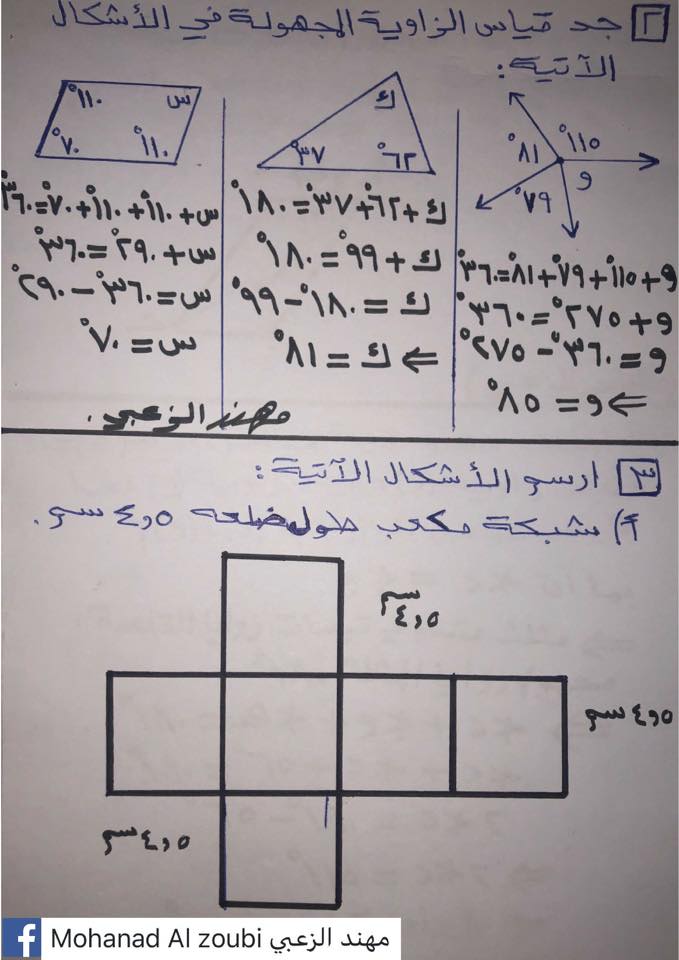 ٢ جد قياس الزاوية المجهولة في الأشكال
الآتية:
١١٥°
٨١°
٧٩°
و
و + ١١٥° + ٧٩° + ٨١° = ٣٦٠°
و + ٢٧٥° = ٣٦٠°
و = ٣٦٠° - ٢٧٥°
⇐ و = ٨٥°
ك
٣٧°
٦٢°
ك + ٦٢° + ٣٧° = ١٨٠°
ك + ٩٩° = ١٨٠°
ك = ١٨٠° - ٩٩°
⇐ ك = ٨١°
١١٠°
س
٧٠°
١١٠°
س + ١١٠° + ١١٠° + ٧٠° = ٣٦٠°
س + ٢٩٠° = ٣٦٠°
س = ٣٦٠° - ٢٩٠°
س = ٧٠°
مهند الزعبي.
٣ ارسم الأشكال الآتية:
أ) شبكة مكعب طول ضلعه ٤,٥ سم.
٤,٥ سم
٤,٥ سم
٤,٥ سم
Mohanad Al zoubi مهند الزعبي